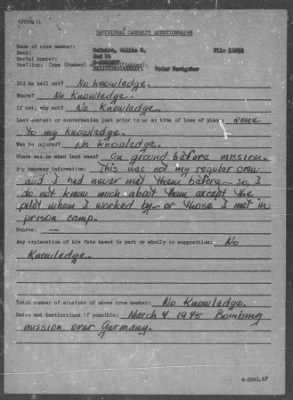 INDIVIDUAL CASUALTY QUESTIONNAIRE
Name of crew member:
Rank:
Serial number:
Position: Crew (Bomber) Radar Navigator
Did he bail out? No knowledge.
Where? No Knowledge.
If not, why not? No Knowledge.
Last contact or conversation just prior to or at time of loss of plane: None
To my knowledge.
Was he injured? No Knowledge.
Where was he when last seen? On ground before mission.
Any hearsay information: This was not my regular crew
and I had never met them before - so, I
do not know much about them except the
pilot whom I worked by - or those I met in
prison camp.
Source: —
Any explanation of his fate based in part or wholly on supposition: No
Knowledge.
Total number of missions of above crew member: No Knowledge.
Dates and destinations if possible: March 4 1945 Bombing
mission over Germany.
6-3861,AF